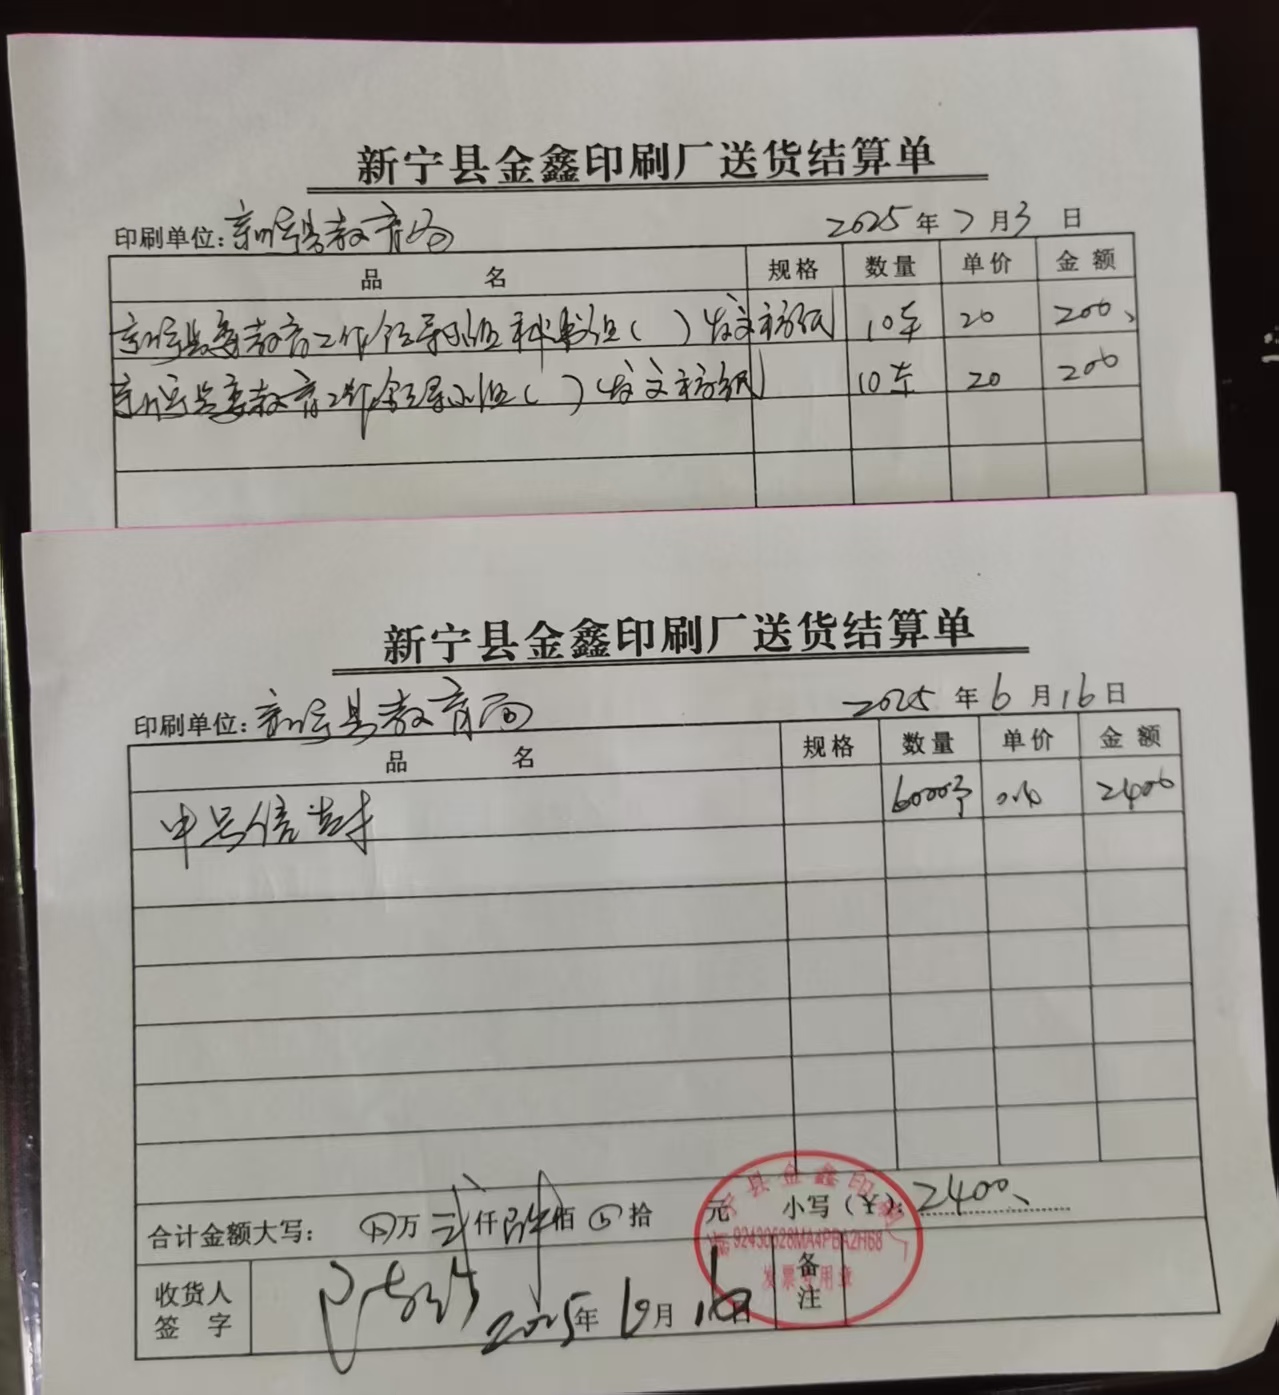 新宁县金鑫印刷厂送货结算单
印刷单位:新宁县教育局 2025年7月3日
品 名 规格 数量 单价 金额
新宁县委教育工作领导小组秘书组( )发文稿纸 10本 20 200、
新宁县委教育工作领导小组( )发文稿纸 10本 20 200
新宁县金鑫印刷厂送货结算单
印刷单位:新宁县教育局 2025年6月16日
品 名 规格 数量 单价 金额
中号信封 6000个 0.40 2400
合计金额大写: 万 贰仟肆佰 拾 元 小写(¥):2400、
收货人签字 2025年6月16日 备注
宁县金鑫印刷厂
92430528MA4PBA2H68
发票专用章